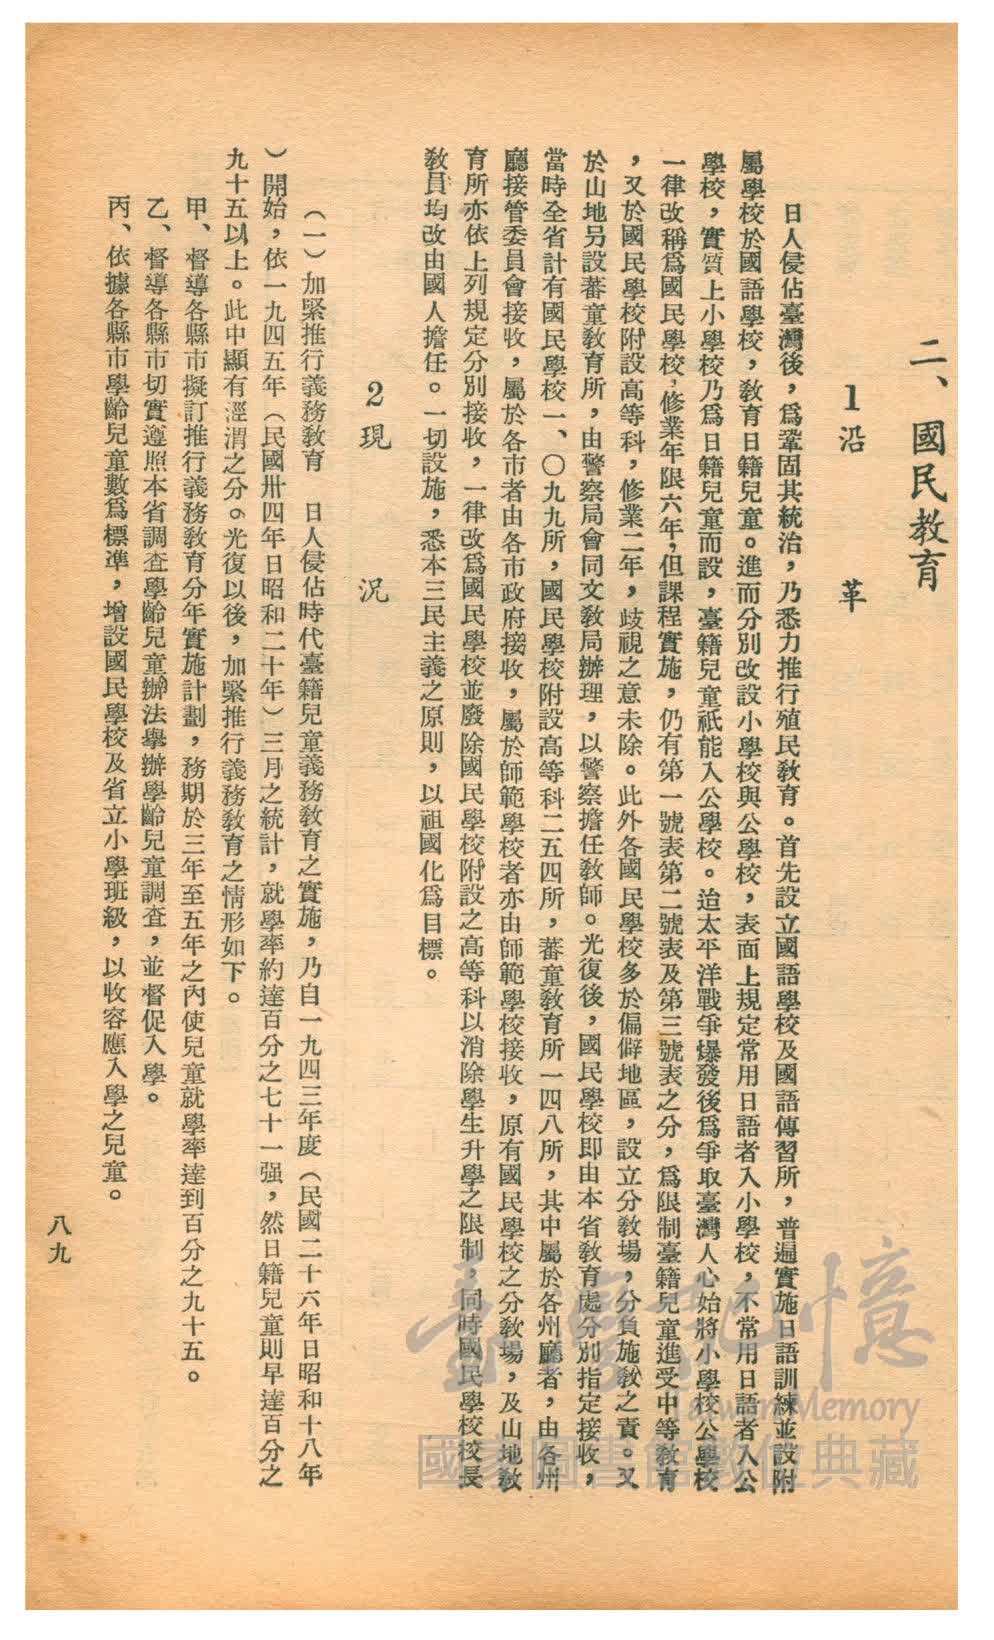 二、國民教育
1沿革
日人侵佔臺灣後，爲鞏固其統治，乃悉力推行殖民教育。首先設立國語學校及國語傳習所，普遍實施日語訓練並設附
屬學校於國語學校，教育日籍兒童。進而分別改設小學校與公學校，表面上規定常用日語者入小學校，不常用日語者入公
學校，實質上小學校乃爲日籍兒童而設，臺籍兒童祇能入公學校。迨太平洋戰爭爆發後爲爭取臺灣人心始將小學校公學校
一律改稱爲國民學校，修業年限六年，但課程實施，仍有第一號表第二號表及第三號表之分，爲限制臺籍兒童進受中等教育
，又於國民學校附設高等科，修業二年，歧視之意未除。此外各國民學校多於偏僻地區，設立分教場，分負施教之責。又
於山地另設蕃童教育所，由警察局會同文教局辦理，以警察擔任教師。光復後，國民學校即由本省教育處分別指定接收，
當時全省計有國民學校一、〇九九所，國民學校附設高等科二五四所，蕃童教育所一四八所，其中屬於各州廳者，由各州
廳接管委員會接收，屬於各市者由各市政府接收，屬於師範學校者亦由師範學校接收，原有國民學校之分教場，及山地教
育所亦依上列規定分別接收，一律改爲國民學校並廢除國民學校附設之高等科以消除學生升學之限制，同時國民學校校長
教員均改由國人擔任。一切設施，悉本三民主義之原則，以祖國化爲目標。
2現況
（一）加緊推行義務教育　日人侵佔時代臺籍兒童義務教育之實施，乃自一九四三年度（民國二十六年日昭和十八年
）開始，依一九四五年（民國卅四年日昭和二十年）三月之統計，就學率約達百分之七十一强，然日籍兒童則早達百分之
九十五以上。此中顯有涇渭之分。光復以後，加緊推行義務教育之情形如下。
甲、督導各縣市擬訂推行義務教育分年實施計劃，務期於三年至五年之內使兒童就學率達到百分之九十五。
乙、督導各縣市切實遵照本省調查學齡兒童辦法舉辦學齡兒童調查，並督促入學。
丙、依據各縣市學齡兒童數爲標準，增設國民學校及省立小學班級，以收容應入學之兒童。
八九
臺灣記憶
Taiwan Memory
國家圖書館數位典藏